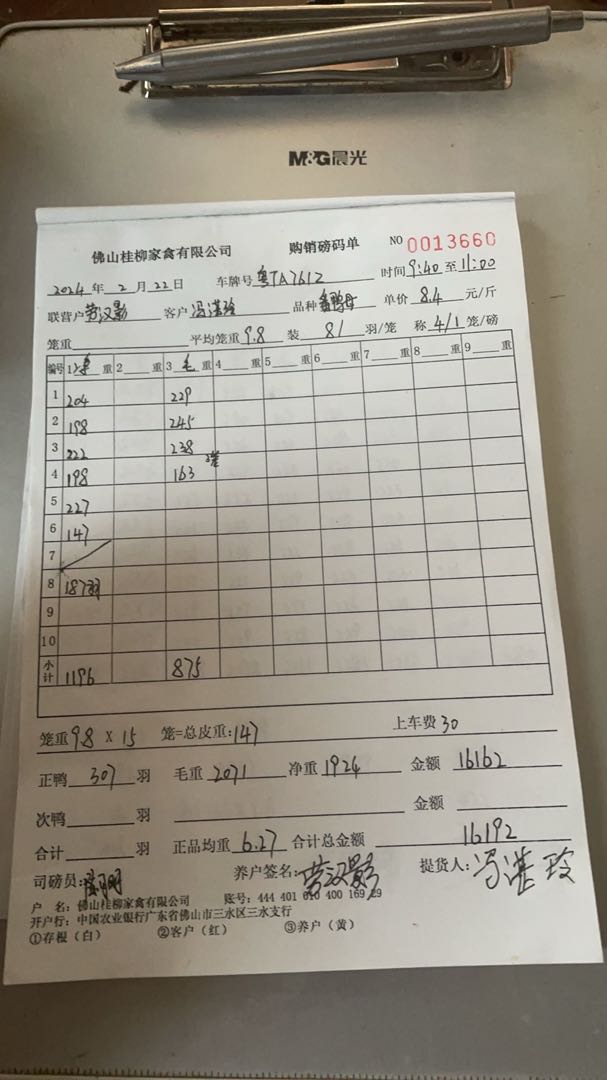 M&G晨光
佛山桂柳家禽有限公司 购销磅码单 NO 0013660
2024年2月22日 车牌号 粤TA7612 时间9:40至11:00
联营户劳汉影 客户 品种 单价8.4元/斤
笼重 平均笼重9.8 装8/羽/笼 称4/1笼/磅
编号 1净重 2重 3毛重 4重 5重 6重 7重 8重 9重
1 204 229
2 198 245
3 222 238
4 198 163
5 227
6 147
7
8 187羽
9
10
小计 1196 875
笼重9.8 X 15 笼=总皮重:147 上车费30
正鸭 307 羽 毛重 2071 净重 1924 金额 16162
次鸭 羽 金额
合计 羽 正品均重 6.27 合计总金额 16192
司磅员: 养户签名:劳汉影 提货人:
户 名: 佛山桂柳家禽有限公司 账号: 444 401 010 400 169 29
开户行: 中国农业银行广东省佛山市三水区三水支行
①存根(白) ②客户(红) ③养户(黄)